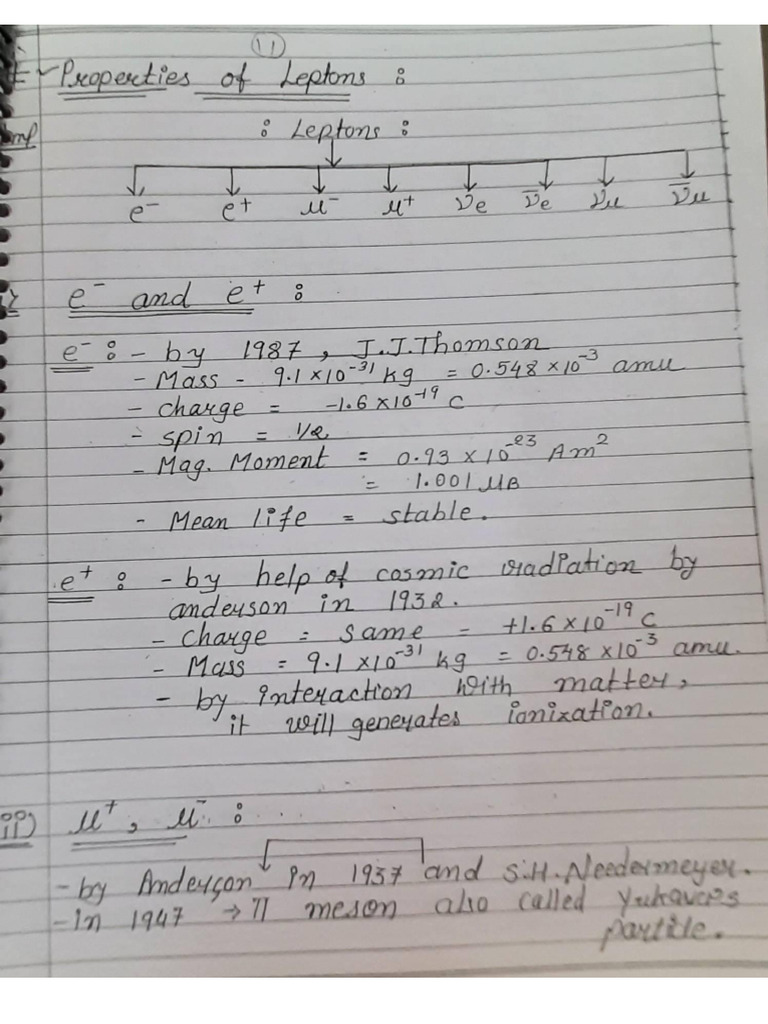 11
Properties of Leptons :
Imp
: Leptons :
e⁻ e⁺ μ⁻ μ⁺ νe ν̄e νμ ν̄μ
e⁻ and e⁺ :
e⁻ : - by 1987, J.J.Thomson
- Mass - 9.1 × 10⁻³¹ kg = 0.548 × 10⁻³ amu
- charge = -1.6 × 10⁻¹⁹ C
- spin = 1/2
- Mag. Moment = 0.93 × 10⁻²³ Am²
= 1.001 μB
- Mean life = stable.
e⁺ : - by help of cosmic radiation by
anderson in 1932.
- Charge = same = +1.6 × 10⁻¹⁹ C
- Mass = 9.1 × 10⁻³¹ kg = 0.548 × 10⁻³ amu.
- by interaction with matter,
it will generates ionization.
ii) μ⁺, μ⁻ :
- by Anderson in 1937 and S.H. Needermeyer.
- In 1947 → π meson also called Yukawas
partile.